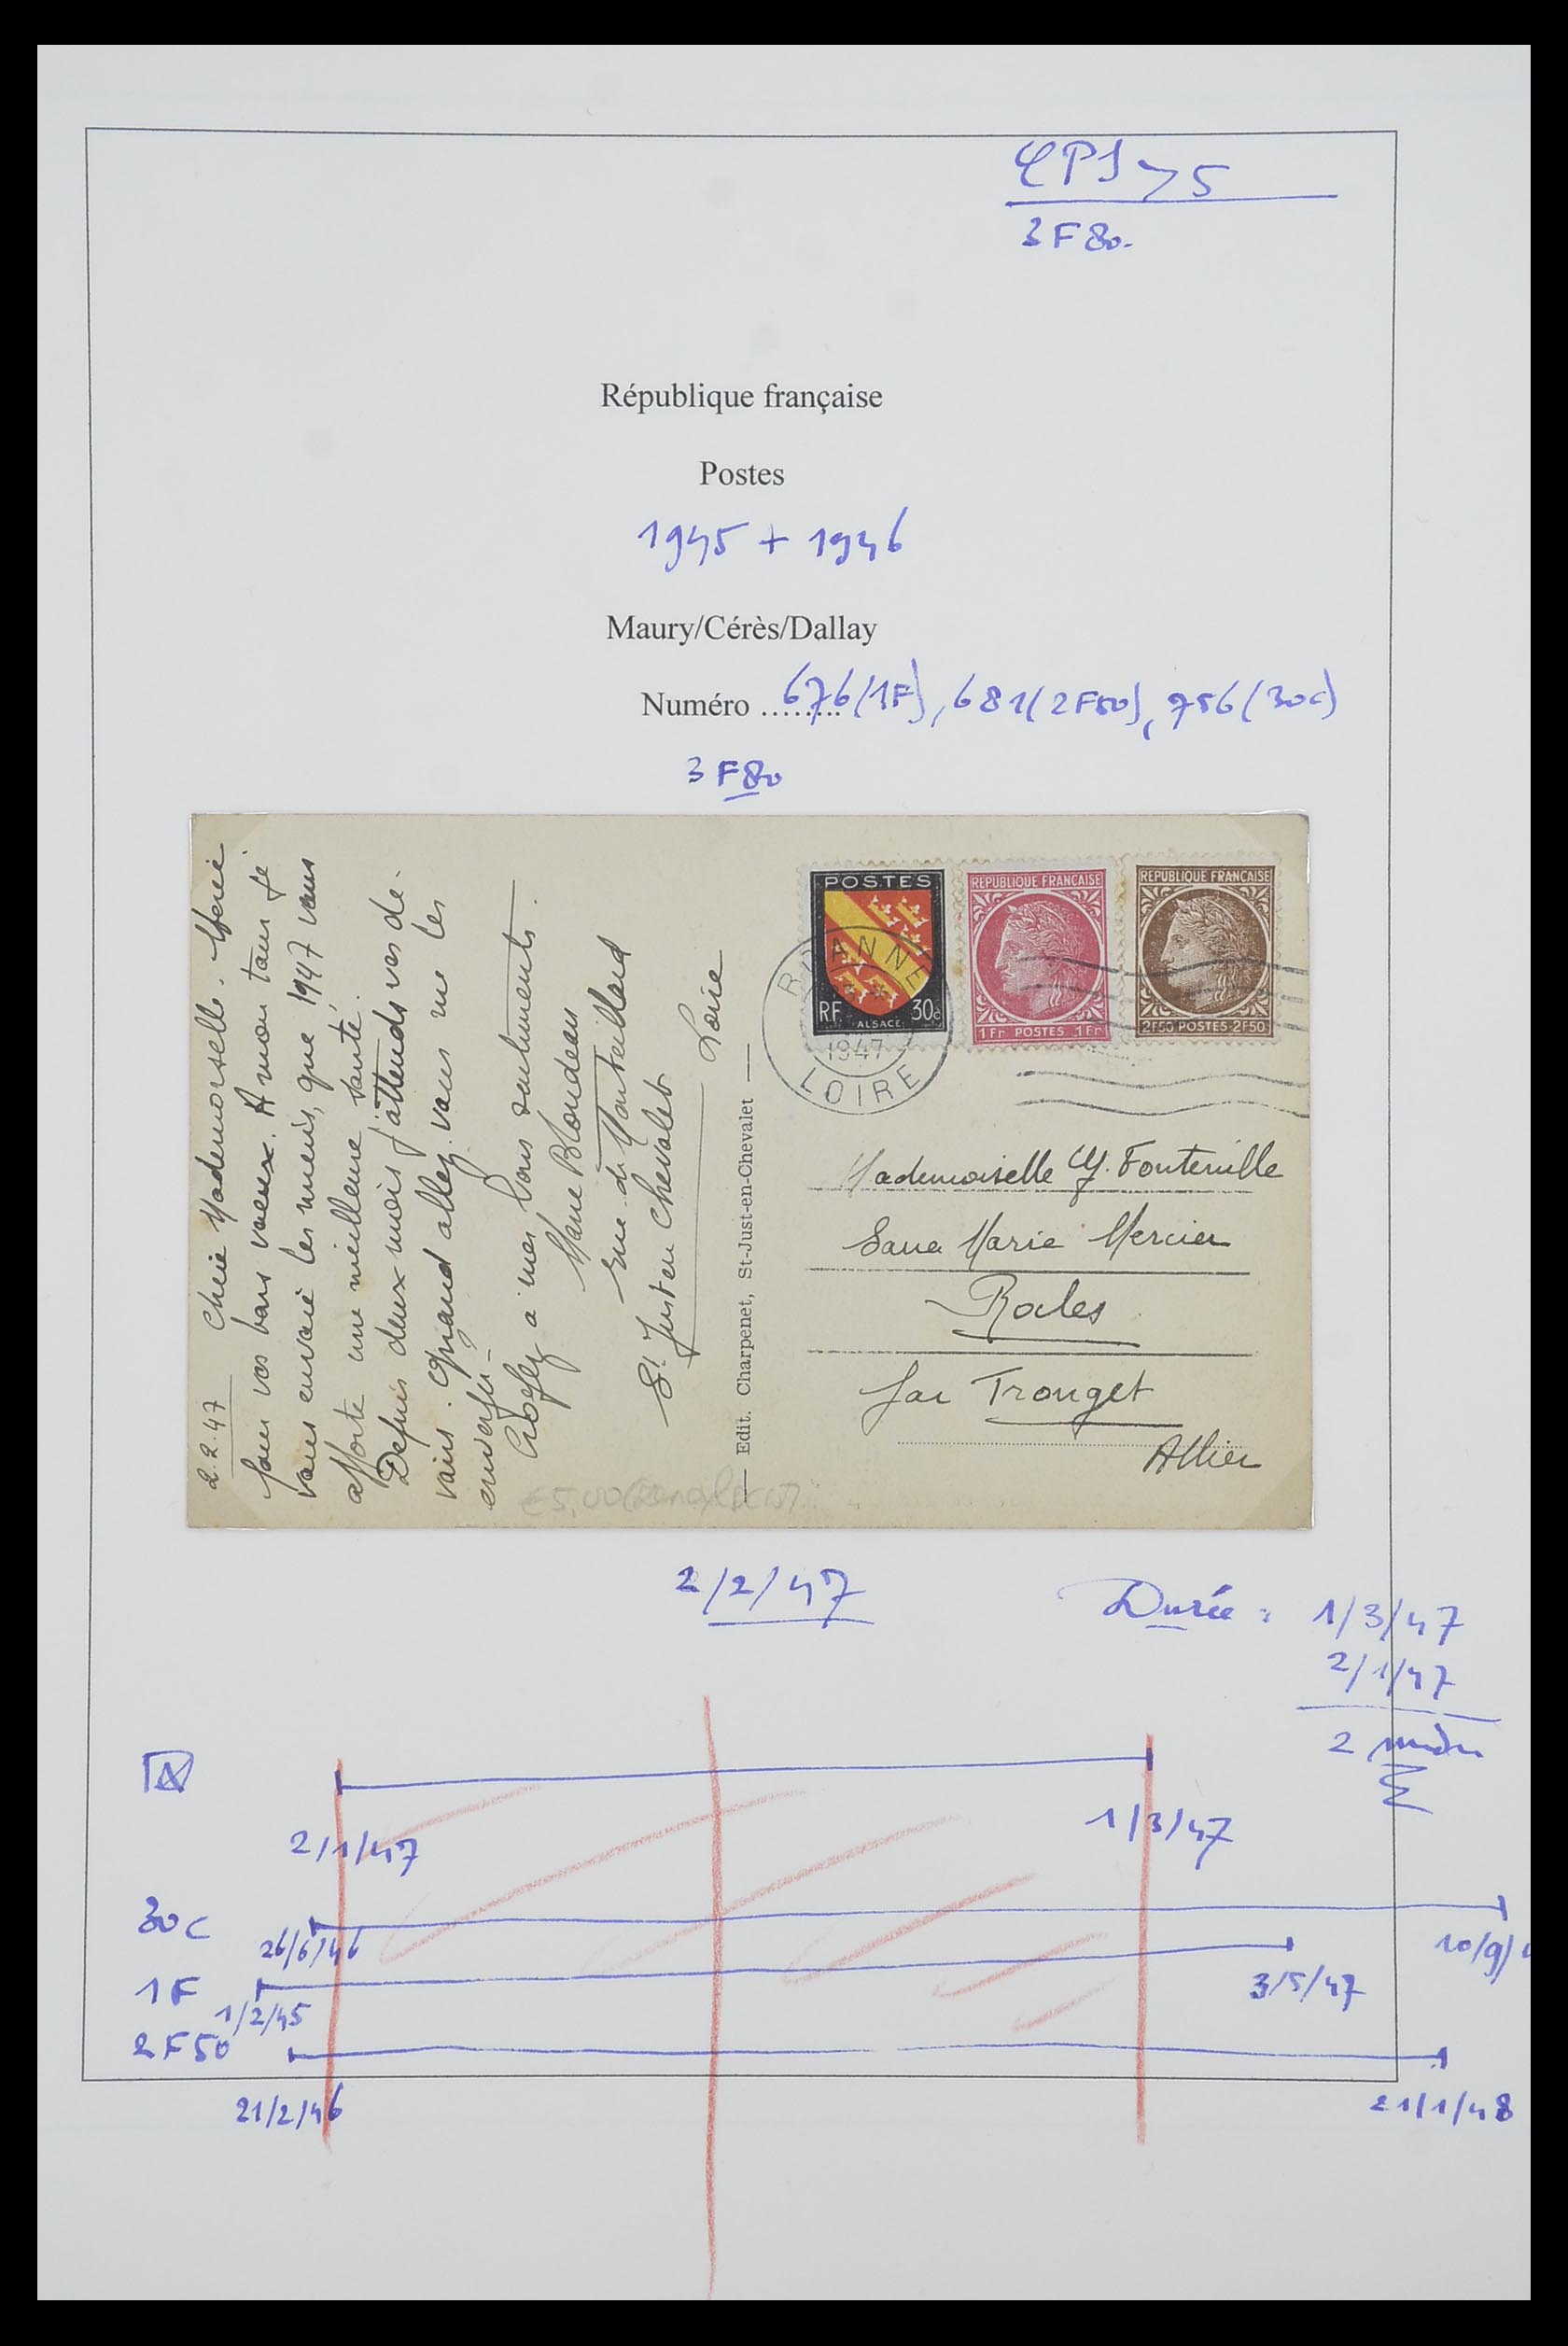 CPI > 5
3F80.
République française
Postes
1945 + 1946
Maury/Cérès/Dallay
Numéro ........ 676(1F), 681(2F50), 756(30c)
3F80
2.2.47
Chère Mademoiselle. Merci
pour vos bons vœux. A mon tour je
vous envoie les miens, que 1947 vous
apporte une meilleure santé.
Depuis deux mois j'attends vos de-
vous. Quand allez vous me les
à mes bons sentiments.
Marie Blondeau
rue de Montaillard
St Just en Chevalet
Loire
Edit. Charpenet, St-Just-en-Chevalet
POSTES
RF ALSACE 30c
REPUBLIQUE FRANÇAISE
1Fr POSTES 1Fr
REPUBLIQUE FRANÇAISE
2F50 POSTES 2F50
ROANNE
1947
LOIRE
Mademoiselle Y. Fontenille
Sana Marie Mercier
Rocles
par Tronget
Allier
2/2/47
Durée : 1/3/47
2/1/47
2 mois
2/1/47
1/3/47
30c
26/6/46
10/9/
1F
1/2/45
3/5/47
2F50
21/2/46
21/1/48